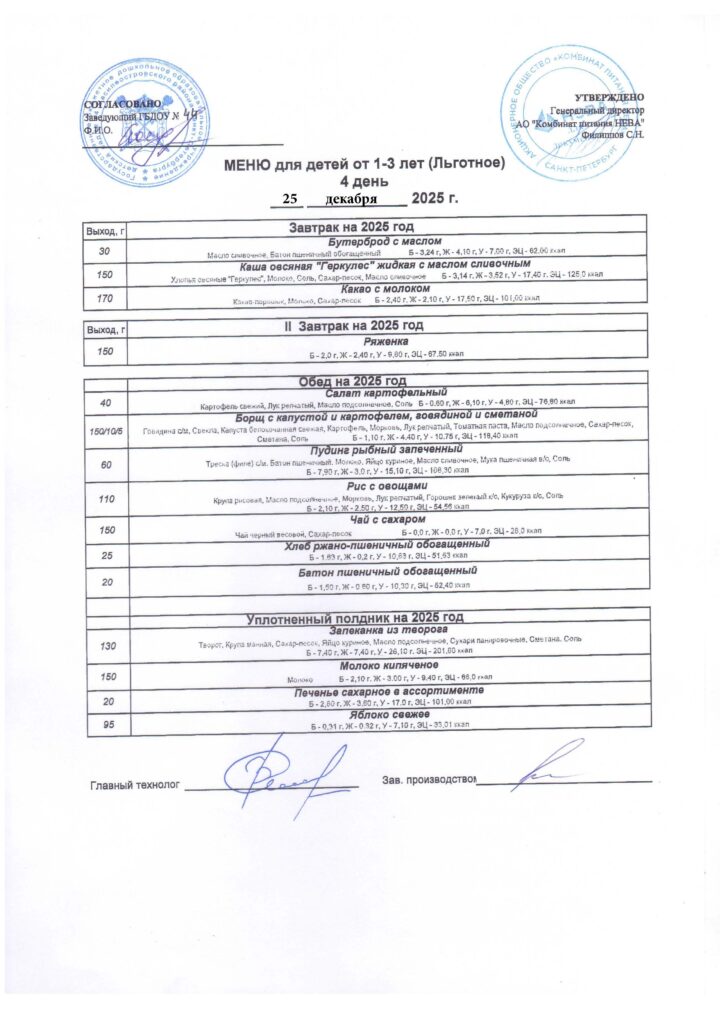 СОГЛАСОВАНО
Заведующий ГБДОУ № 44
Ф.И.О.
УТВЕРЖДЕНО
Генеральный директор
АО "Комбинат питания НЕВА"
Филиппов С.Н.
МЕНЮ для детей от 1-3 лет (Льготное)
4 день
25 декабря 2025 г.
Выход, г Завтрак на 2025 год
Бутерброд с маслом
30 Масло сливочное, Батон пшеничный обогащенный Б - 3,24 г, Ж - 4,10 г, У - 7,00 г, ЭЦ - 62,00 ккал
Каша овсяная "Геркулес" жидкая с маслом сливочным
150 Хлопья овсяные "Геркулес", Молоко, Соль, Сахар-песок, Масло сливочное Б - 3,14 г, Ж - 3,52 г, У - 17,40 г, ЭЦ - 125,0 ккал
Какао с молоком
170 Какао-порошок, Молоко, Сахар-песок Б - 2,40 г, Ж - 2,10 г, У - 17,50 г, ЭЦ - 101,00 ккал
Выход, г II Завтрак на 2025 год
Ряженка
150 Б - 2,0 г, Ж - 2,40 г, У - 9,60 г, ЭЦ - 67,50 ккал
Обед на 2025 год
Салат картофельный
40 Картофель свежий, Лук репчатый, Масло подсолнечное, Соль Б - 0,60 г, Ж - 6,10 г, У - 4,80 г, ЭЦ - 76,80 ккал
Борщ с капустой и картофелем, говядиной и сметаной
150/10/5 Говядина с/м, Свекла, Капуста белокочанная свежая, Картофель, Морковь, Лук репчатый, Томатная паста, Масло подсолнечное, Сахар-песок,
Сметана, Соль Б - 1,10 г, Ж - 4,40 г, У - 10,75 г, ЭЦ - 118,40 ккал
Пудинг рыбный запеченный
60 Треска (филе) с/м, Батон пшеничный, Молоко, Яйцо куриное, Масло сливочное, Мука пшеничная в/с, Соль
Б - 7,90 г, Ж - 3,0 г, У - 15,10 г, ЭЦ - 106,30 ккал
Рис с овощами
110 Крупа рисовая, Масло подсолнечное, Морковь, Лук репчатый, Горошек зеленый с/с, Кукуруза с/с, Соль
Б - 2,10 г, Ж - 2,50 г, У - 12,50 г, ЭЦ - 54,56 ккал
Чай с сахаром
150 Чай черный весовой, Сахар-песок Б - 0,0 г, Ж - 0,0 г, У - 7,0 г, ЭЦ - 26,0 ккал
Хлеб ржано-пшеничный обогащенный
25 Б - 1,63 г, Ж - 0,2 г, У - 10,63 г, ЭЦ - 51,63 ккал
Батон пшеничный обогащенный
20 Б - 1,50 г, Ж - 0,60 г, У - 10,30 г, ЭЦ - 52,40 ккал
Уплотненный полдник на 2025 год
Запеканка из творога
130 Творог, Крупа манная, Сахар-песок, Яйцо куриное, Масло подсолнечное, Сухари панировочные, Сметана, Соль
Б - 7,40 г, Ж - 7,40 г, У - 26,10 г, ЭЦ - 201,60 ккал
Молоко кипяченое
150 Молоко Б - 2,10 г, Ж - 3,00 г, У - 9,40 г, ЭЦ - 66,0 ккал
Печенье сахарное в ассортименте
20 Б - 2,60 г, Ж - 3,60 г, У - 17,0 г, ЭЦ - 101,00 ккал
Яблоко свежее
95 Б - 0,31 г, Ж - 0,32 г, У - 7,10 г, ЭЦ - 33,01 ккал
Главный технолог
Зав. производством